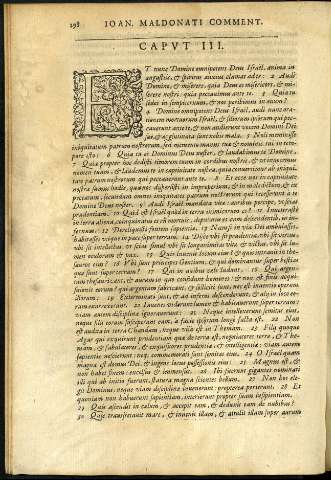 198 IOAN. MALDONATI COMMENT.
CAPVT III.
ET nunc Domine omnipotens Deus Israel, anima in
angustiis, & spiritus anxius clamat ad te: 2 Audi
Domine, & miserere, quia Deus es misericors, & mi-
serere nostri: quia peccauimus ante te. 3 Quia tu
sedes in sempiternum, & nos peribimus in æuum?
4 Domine omnipotens Deus Israel, audi nunc ora-
tionem mortuorum Israel, & filiorum ipsorum qui pec-
cauerunt ante te, & non audierunt vocem Domini Dei
sui, & agglutinata sunt nobis mala. 5 Noli meminisse
iniquitatum patrum nostrorum, sed memento manus tuæ & nominis tui in tem-
pore isto: 6 Quia tu es Dominus Deus noster, & laudabimus te Domine.
7 Quia propter hoc dedisti timorem tuum in cordibus nostris, & vt inuocemus
nomen tuum, & laudemus te in captiuitate nostra, quia conuertimur ab iniquita-
te patrum nostrorum qui peccauerunt ante te. 8 Et ecce nos in captiuitate
nostra sumus hodie, quanos dispersisti in improperium, & in maledictum, & in
peccatum, secundum omnes iniquitates patrum nostrorum, qui recesserunt à te
Domine Deus noster. 9 Audi Israel mandata vitæ: auribus percipe, vt scias
prudentiam. 10 Quid est Israel quòd in terra inimicorum es? 11 Inueterasti
in terra aliena, coinquinatus es cum mortuis, deputatus es cum descendentibus in in-
fernum. 12 Dereliquisti fontem sapientiæ. 13 Nam si in via Dei ambulasses,
habitasses vtique in pace super terram. 14 Disce vbi sit prudentia, vbi sit virtus,
vbi sit intellectus: vt scias simul vbi sit longiturnitas vitæ & victus, vbi sit lu-
men oculorum & pax. 15 Quis inuenit locum eius? & quis intrauit in the-
sauros eius? 16 Vbi sunt principes Gentium, & qui dominantur super bestias
quæ sunt super terram? 17 Qui in auibus cæli ludunt. 18 Qui argen-
tum thesaurizant, & aurum in quo confidunt homines: & non est finis acqui-
sitionis eorum? qui argentum fabricant, & solliciti sunt, nec est inuentio operum
illorum? 19 Exterminati sunt, & ad inferos descenderunt, & alij loco eo-
rum exurrexerunt. 20 Iuuenes viderunt lumen & habitauerunt super terram:
viam autem disciplinæ ignorauerunt: 21 Neque intellexerunt semitas eius,
neque filij eorum susceperunt eam, à facie ipsorum longè facta est. 22 Non
est audita in terra Chanaan, neque visa est in Theman. 23 Filij quoque
Agar qui exquirunt prudentiam quæ de terra est, negotiatores terræ, & The-
man, & fabulatores, & exquisitores prudentiæ, & intelligentiæ: viam autem
sapientiæ nescierunt: neque commemorati sunt semitas eius. 24 O Israel quàm
magna est domus Dei, & ingens locus possessionis eius! 25 Magnus est, &
non habet finem: excelsus & immensus. 26 Ibi fuerunt gigantes nominati
illi qui ab initio fuerunt, statura magna scientes bellum. 27 Non hos ele-
git Dominus, neque viam disciplinæ inuenerunt: propterea perierunt. 28 Et
quoniam non habuerunt sapientiam, interierunt propter suam insipientiam.
29 Quis ascendit in cælum, & accepit eam, & deduxit eam de nubibus?
30 Quis transfretauit mare, & inuenit illam, & attulit illam super aurum